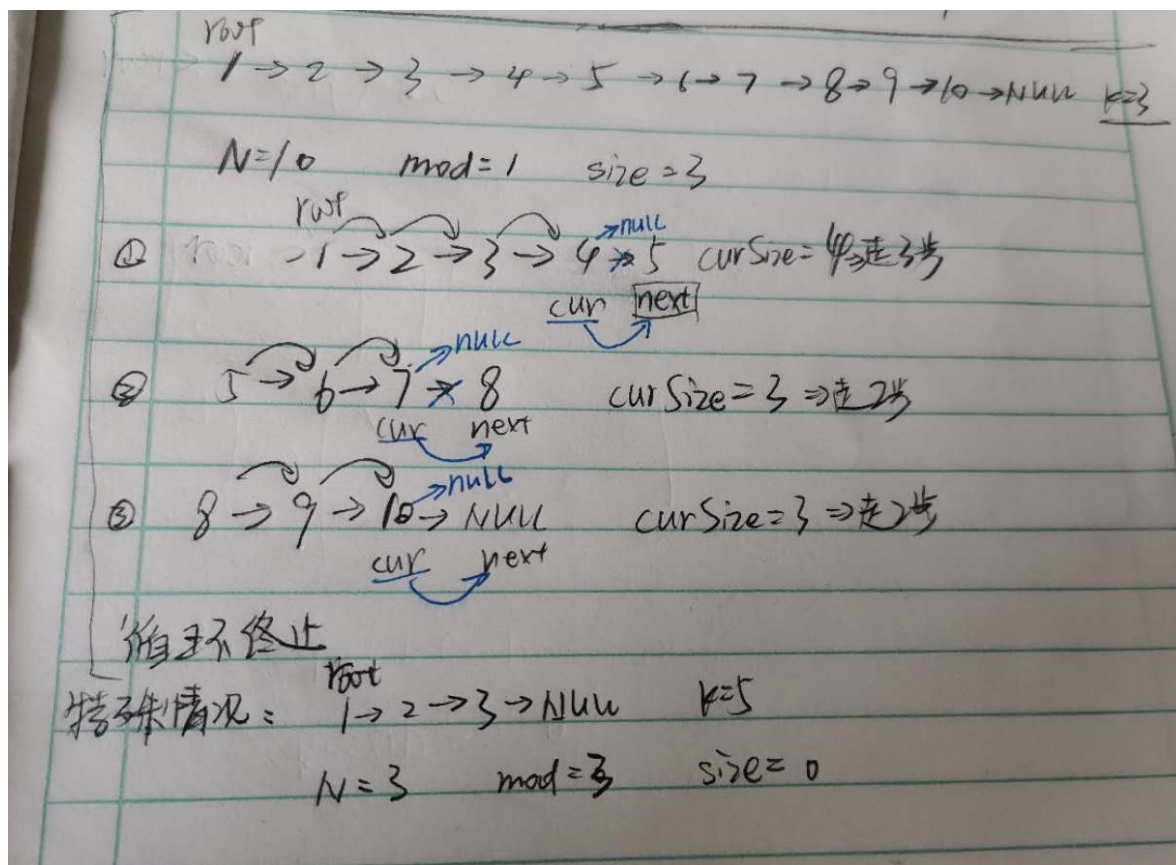 root
1 → 2 → 3 → 4 → 5 → 6 → 7 → 8 → 9 → 10 → NULL k=3
N=10 mod=1 size=3
root
① 1 → 2 → 3 → 4 → 5 null curSize=4⇒走3步
cur next
② 5 → 6 → 7 → 8 null curSize=3⇒走2步
cur next
③ 8 → 9 → 10 → NULL null curSize=3⇒走2步
cur next
循环终止
root
特殊情况: 1 → 2 → 3 → NULL k=5
N=3 mod=3 size=0